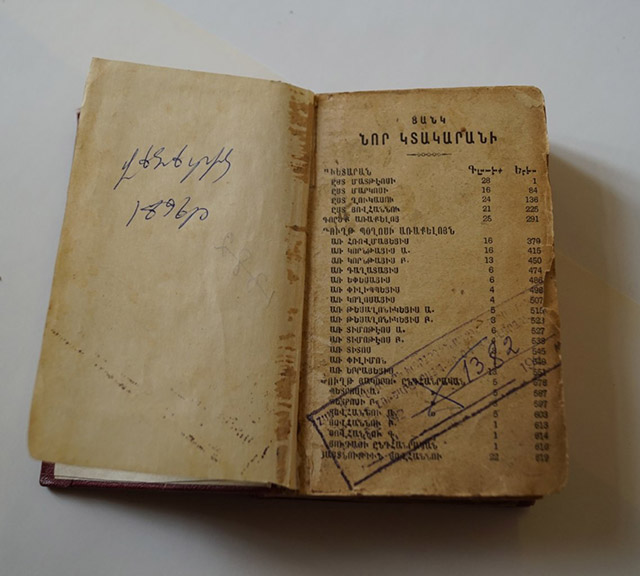 Վենետիկ
1896թ
ՑԱՆԿ
ՆՈՐ ԿՏԱԿԱՐԱՆԻ
ԱՒԵՏԱՐԱՆ
ԸՍՏ ՄԱՏԹԷՈՍԻ 28 1
ԸՍՏ ՄԱՐԿՈՍԻ 16 84
ԸՍՏ ՂՈՒԿԱՍՈՒ 24 136
ԸՍՏ ՅՈՎՀԱՆՆՈՒ 21 225
ԳՈՐԾՔ ԱՌԱՔԵԼՈՑ 291
ԹՈՒՂԹ ՊՕՂՈՍԻ ԱՌԱՔԵԼՈՅՆ
ԱՌ ՀՌՈՎՄԱՅԵՑԻՍ 16 379
ԱՌ ԿՈՐՆԹԱՑԻՍ Ա. 16 415
ԱՌ ԿՈՐՆԹԱՑԻՍ Բ. 13 450
ԱՌ ԳԱՂԱՏԱՑԻՍ 6 474
ԱՌ ԵՓԵՍԱՑԻՍ 6 486
ԱՌ ՓԻԼԻՊՊԵՑԻՍ 4 498
ԱՌ ԿՈՂՈՍԱՑԻՍ 4 507
ԱՌ ԹԵՍԱՂՈՆԻԿԵՑԻՍ Ա. 5 515
ԱՌ ԹԵՍԱՂՈՆԻԿԵՑԻՍ Բ. 3
ԱՌ ՏԻՄՈԹԷՈՍ Ա. 6 527
ԱՌ ՏԻՄՈԹԷՈՍ Բ.
ԱՌ ՏԻՏՈՍ 545
ԱՌ ՓԻԼԻՄՈՆ
ԱՌ ԵԲՐԱՅԵՑԻՍ 551
1382
ԸՆԴՀԱՆՐԱԿԱՆ
ՅՈՎՀԱՆՆՈՒ Ա. 5 603
ՅՈՎՀԱՆՆՈՒ Բ. 1 613
ՅՈՎՀԱՆՆՈՒ Գ. 1 614
ՅՈՒԴԱՅԻ ԸՆԴՀԱՆՐԱԿԱՆ 1 616
ՅԱՅՏՆՈՒԹԻՒՆ ՅՈՎՀԱՆՆՈՒ 22 619